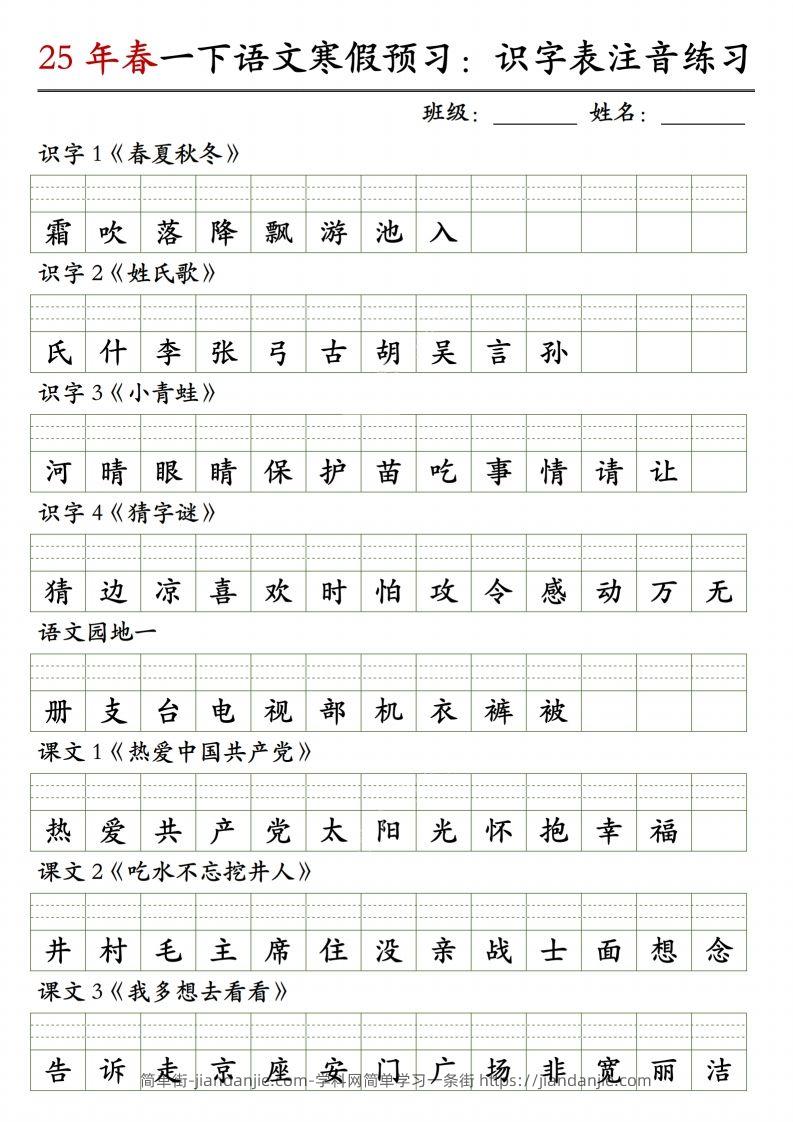 25 年春一下语文寒假预习：识字表注音练习
班级：________ 姓名：________
识字 1《春夏秋冬》
霜 吹 落 降 飘 游 池 入
识字 2《姓氏歌》
氏 什 李 张 弓 古 胡 吴 言 孙
识字 3《小青蛙》
河 晴 眼 睛 保 护 苗 吃 事 情 请 让
识字 4《猜字谜》
猜 边 凉 喜 欢 时 怕 攻 令 感 动 万 无
语文园地一
册 支 台 电 视 部 机 衣 裤 被
课文 1《热爱中国共产党》
热 爱 共 产 党 太 阳 光 怀 抱 幸 福
课文 2《吃水不忘挖井人》
井 村 毛 主 席 住 没 亲 战 士 面 想 念
课文 3《我多想去看看》
告 诉 走 京 座 安 门 广 场 非 宽 丽 洁
简单街-jiandanjie.com-学科网简单学习一条街 https://jiandanjie.com